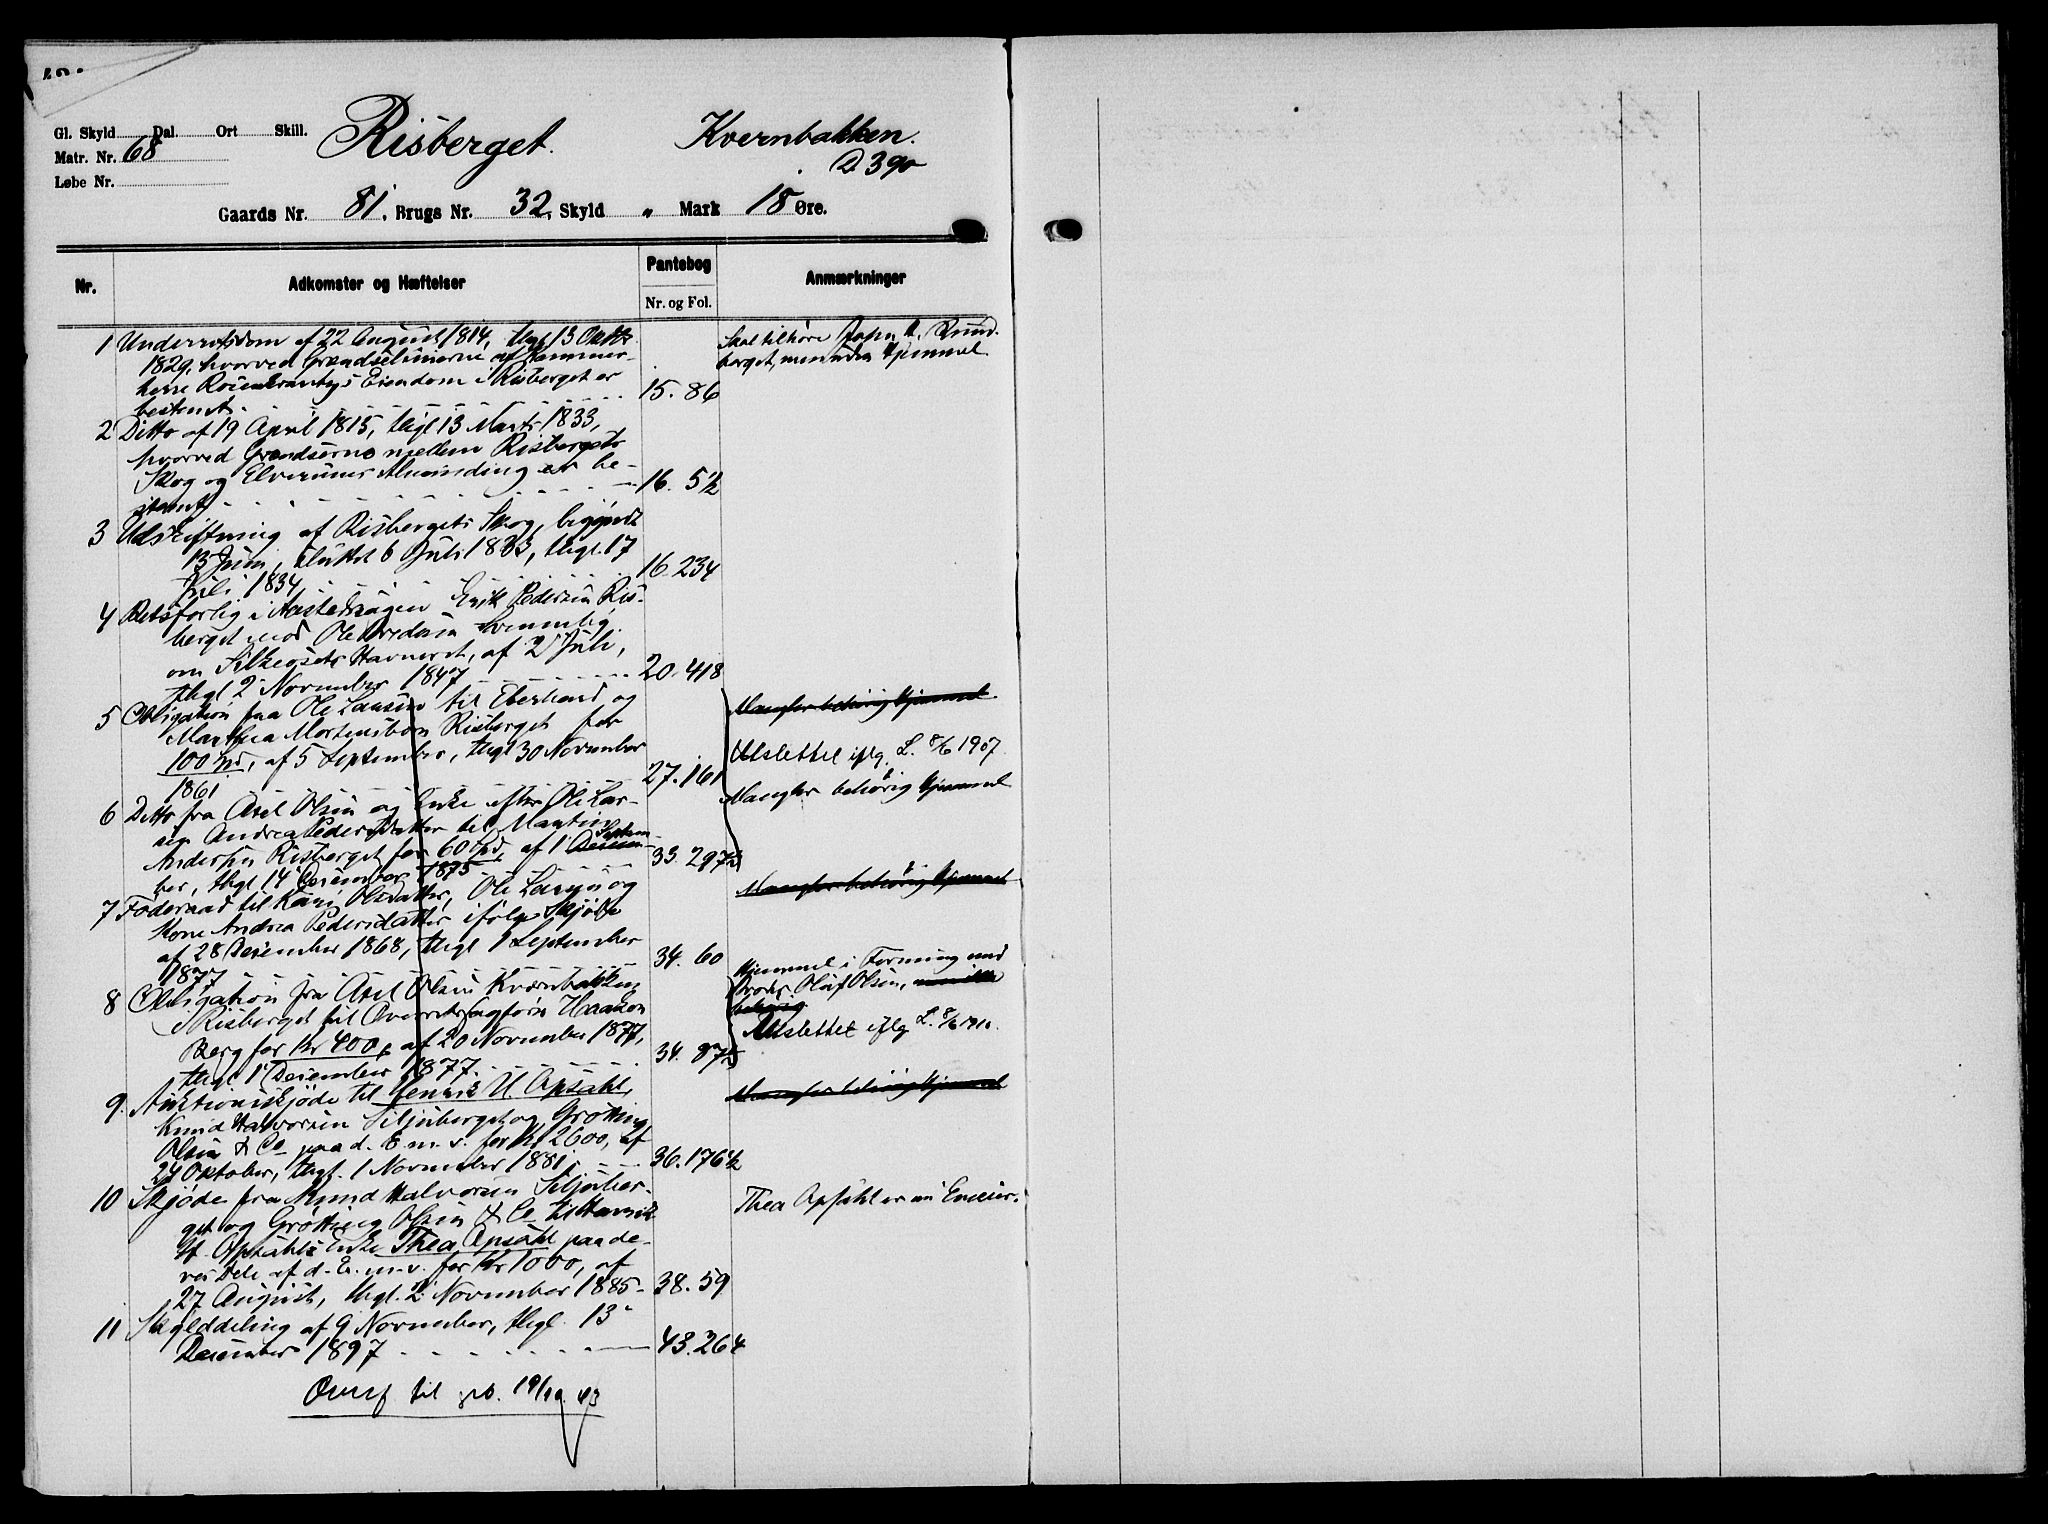 Gl. Skyld Dal. Ort Skill.
Matr. Nr. 68
Løbe Nr.
Risberget. Kvernbakken.
D 390
Gaards Nr. 81, Brugs Nr. 32, Skyld „ Mark 18 Øre.
Nr. Adkomster og Hæftelser Pantebog Anmærkninger
Nr. og Fol.
1 Underretsdom af 22 August 1814, thgl 13 Oktbr
1829, hvorved Grændselinierne af Kammer-
herre Rosenkrantz's Eiendom i Risberget er
bestemt. 15. 86
Skal tilhøre
berget, men uden Hjemmel
2 Ditto af 19 April 1815, thgl 13 Marts 1833,
hvorved Grændserne mellem Risbergets
Skog og Elverums Alminding er be-
stemt 16. 5 1/2
3 Udskiftning af Risbergets Skog, begyndt
13 Juni, sluttet 6 Juli 1833, thgl. 17
Juli 1834 16. 234
4 Retsforlig i Aastedssagen Erik Pedersen Ris-
berget mod Ole
om Havneret, af 2 Juli,
thgl 2 November 1847 20. 418
5 Obligation fra Ole Larsen til Eberhard og
Marthea Mortensbørn Risberget for
100 Spd, af 5 September, thgl 30 November
1861 27. 161
Mangler behørig Hjemmel
Udslettet iflg. L. 8/6 1907.
6 Ditto fra Axel Olsen og Enke efter Ole Lar-
sen Andrea Pedersdatter til Martin
Andersen Risberget for 60 Spd, af 1 Septem-
ber, thgl 14 December 1875 33. 297 1/2
Mangler behørig Hjemmel
7 Føderaad til Kari Olsdatter, Ole Larsen og
Kone Andrea Pedersdatter ifølge Skjøde
af 28 December 1868, thgl 1 September
1877 34. 60
Mangler behørig Hjemmel
8 Obligation fra Axel Olsen Kværnbakken
i Risberget til Overretssagfører Haakon
Berg for Kr 400, af 20 November 1877,
thgl 1 December 1877. 34. 87 1/2
Hjemmel i Forening med
Broder Oluf Olsen, men ikke
behørig
Udslettet iflg L. 8/6 1910.
9. Auktionsskjøde til Henrik U. Opsahl,
Knud Halvorsen Siljuberget og Grøtting
Olsen & Co paa d. E. m. v. for Kr 2600, af
24 Oktober, thgl. 1 November 1881. 36. 176 1/2
Mangler behørig Hjemmel
10 Skjøde fra Knud Halvorsen Siljuber-
get og Grøtting Olsen & Co til Henrik
U. Opsahls Enke Thea Opsahl paa de-
res Dele af d. E. m. v. for Kr 1000, af
27 August, thgl. 2 November 1885 38. 59
Thea Opsahl er nu Eneeier.
11 Skylddeling af 9 November, thgl. 13
December 1897 43. 264
Overf. til